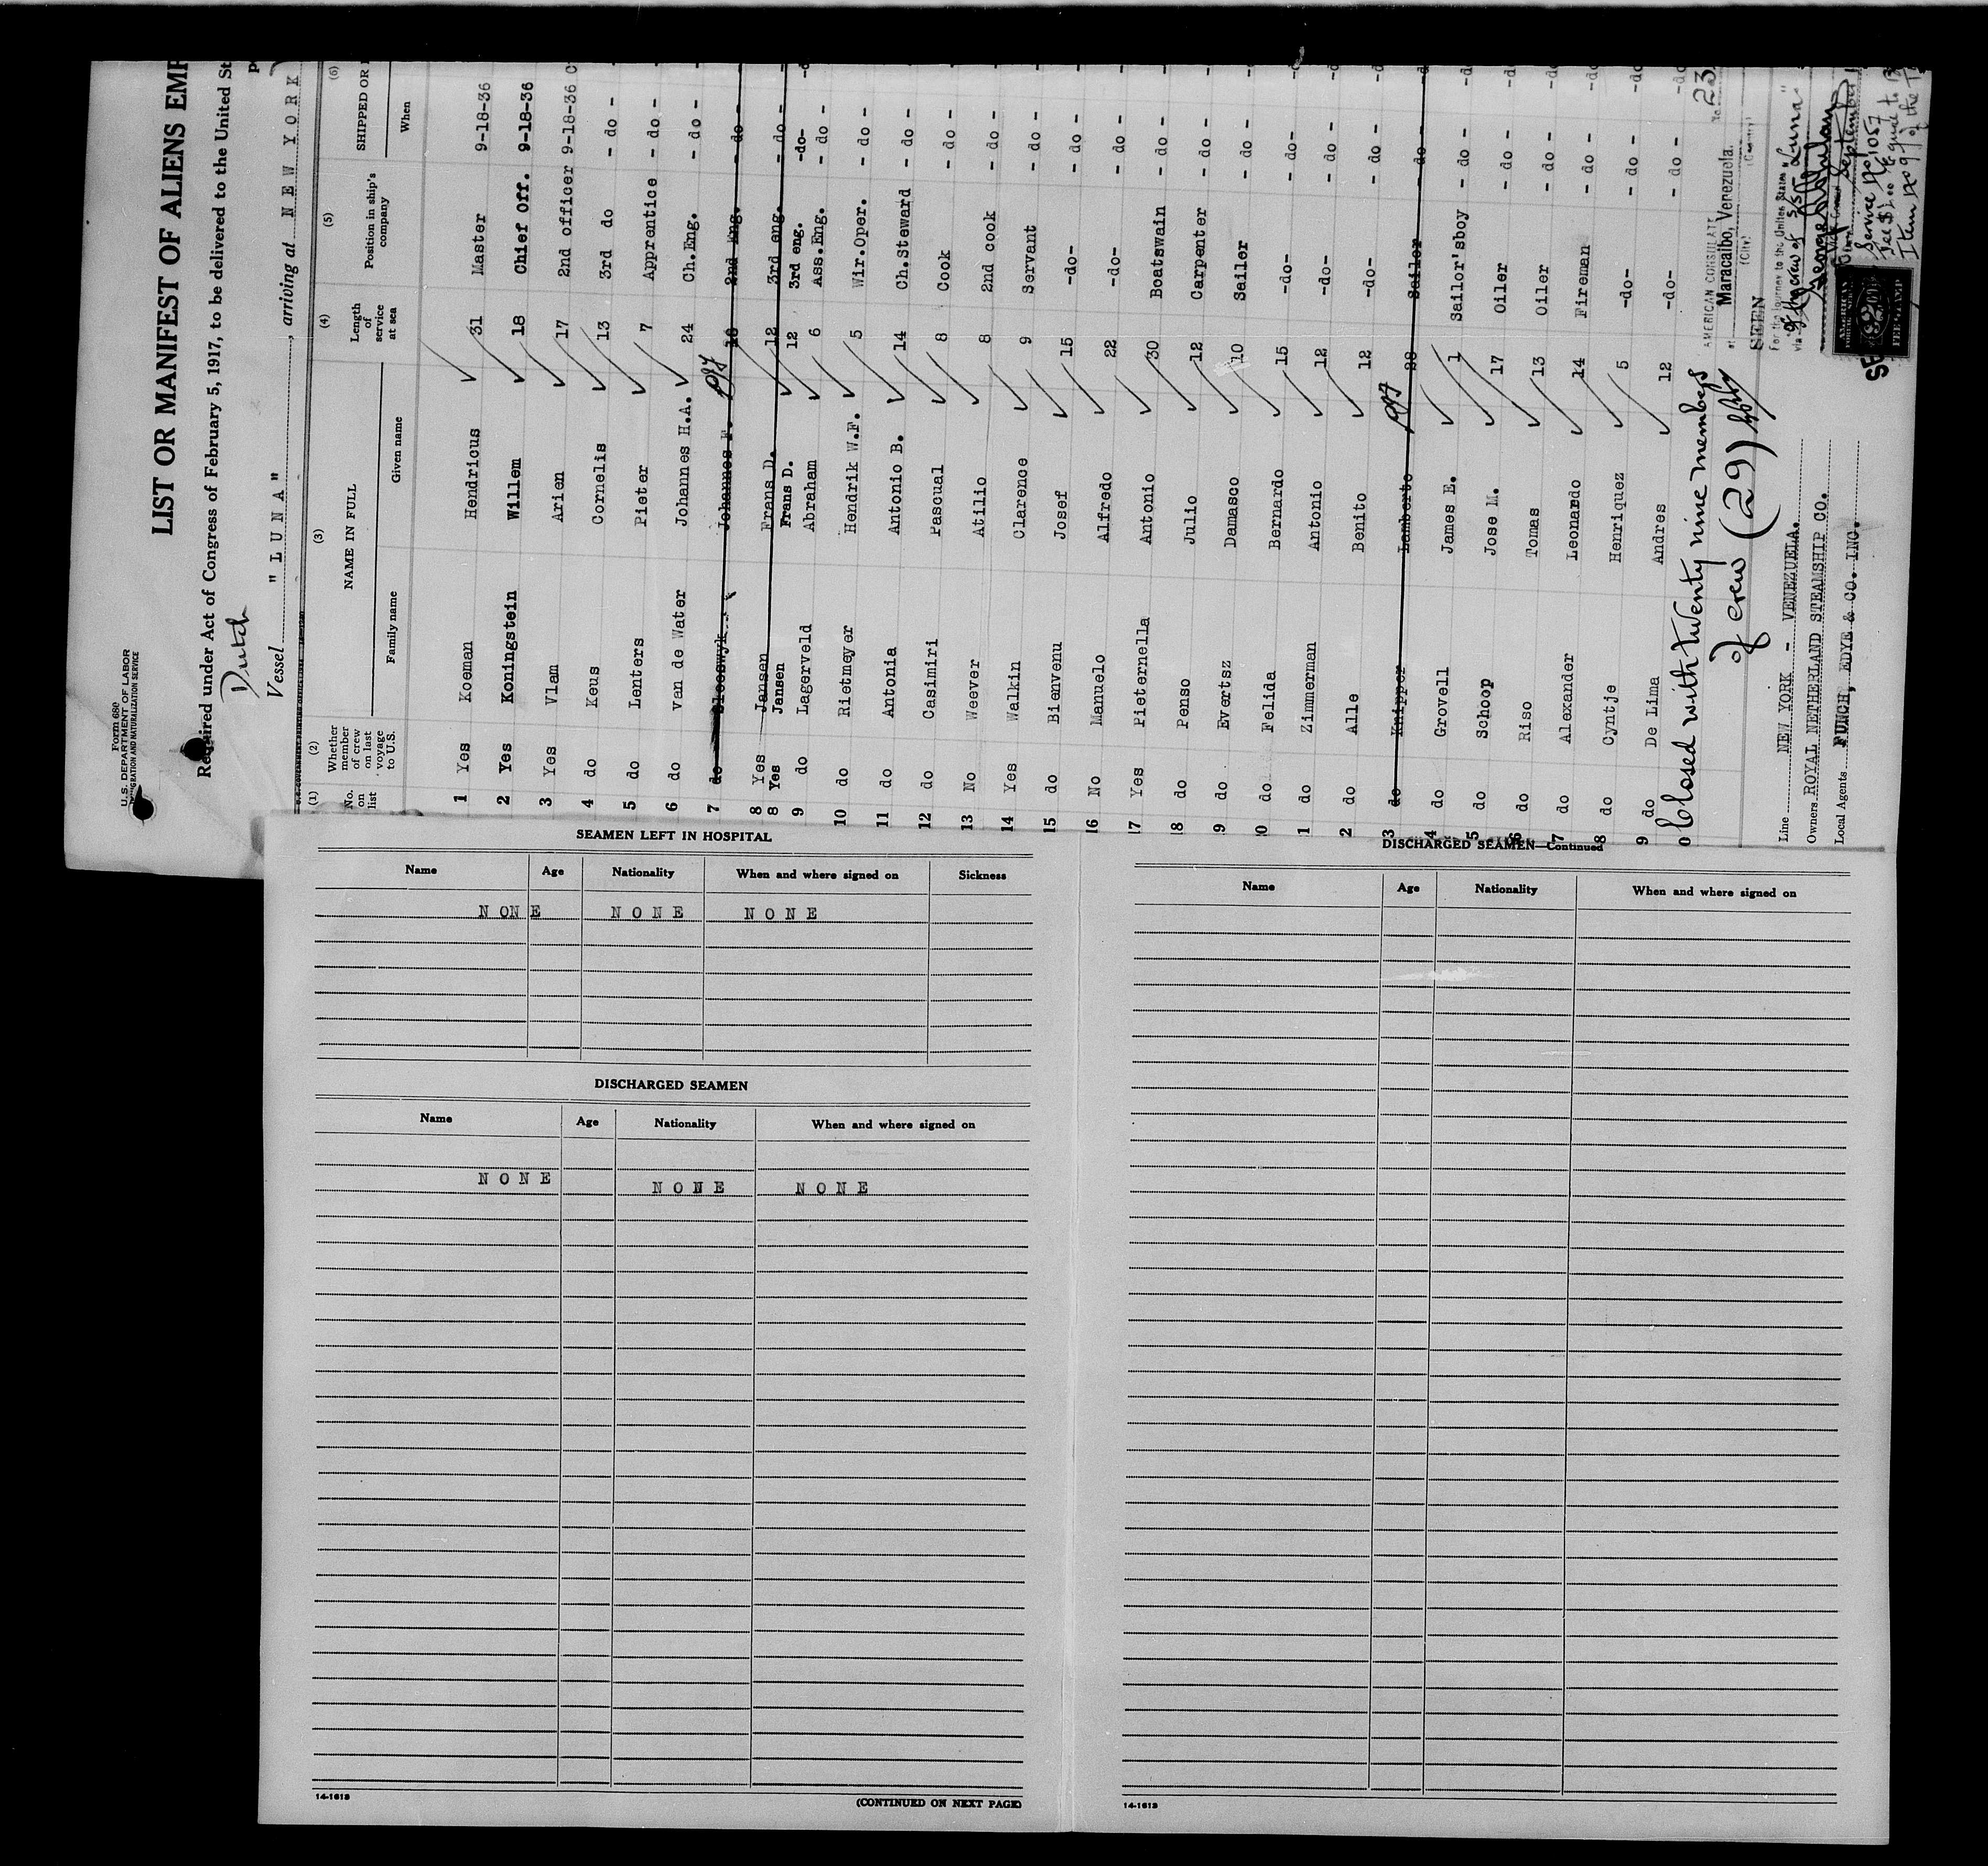 Form 680
U.S. DEPARTMENT OF LABOR
IMMIGRATION AND NATURALIZATION SERVICE
LIST OR MANIFEST OF ALIENS EMP
Required under Act of Congress of February 5, 1917, to be delivered to the United St
Dutch
Vessel "LUNA", arriving at NEW YORK
(1) (2) (3) (4) (5) (6)
No. on list Whether member of crew on last voyage to U.S. NAME IN FULL Family name Given name Length of service at sea Position in ship's company SHIPPED OR When
1 Yes Koeman Hendricus 31 Master 9-18-36
2 Yes Koningstein Willem 18 Chief Off. 9-18-36
3 Yes Vlam Arien 17 2nd officer 9-18-36 C
4 do Keus Cornelis 13 3rd do - do -
5 do Lenters Pieter 7 Apprentice - do -
6 do van de Water Johannes H.A. 24 Ch.Eng. - do -
7 do Sleeswyk Johannes F. 16 2nd Eng. - do -
8 Yes Jansen Frans D. 12 3rd eng. - do -
8 Yes Jansen Frans D. 12 3rd eng. -do-
9 do Lagerveld Abraham 6 Ass.Eng. - do -
10 do Rietmeyer Hendrik W.F. 5 Wir.Oper. - do -
11 do Antonia Antonio B. 14 Ch.Steward - do -
12 do Casimiri Pascual 8 Cook - do -
13 No Weever Atilio 8 2nd cook - do -
14 Yes Walkin Clarence 9 Servant - do -
15 do Bienvenu Josef 15 -do- - do -
16 No Manuelo Alfredo 22 -do- - do -
17 Yes Pieternella Antonio 30 Boatswain - do -
18 do Penso Julio 12 Carpenter - do -
9 do Evertsz Damasco 10 Sailer - do -
0 do Felida Bernardo 15 -do- - do-
1 do Zimmerman Antonio 12 -do- - do -
2 do Alle Benito 12 -do- - do -
3 do Knipper Lamberto 28 Sailer - do -
4 do Grovell James E. 1 Sailor'sboy - do -
5 do Schoop Jose M. 17 Oiler - do -
6 do Riso Tomas 13 Oiler - do -
7 do Alexander Leonardo 14 Fireman - do -
8 do Cyntje Henriquez 5 -do- - do -
9 do De Lima Andres 12 -do- - do -
0 Closed with twenty nine members
of crew (29)
AMERICAN CONSULATE
No. 23
at Maracaibo, Venezuela.
(City) (Country)
SEEN
For the journey to the United States
via of the crew of S/S "Luna"
September
Service No. 1057
Fee $2.00 Equal to
Item No 9 of the T
AMERICAN
FEE STAMP
Line NEW YORK - VENEZUELA.
Owners ROYAL NETHERLAND STEAMSHIP CO.
Local Agents FUNCH, EDYE & CO. INC.
SEAMEN LEFT IN HOSPITAL
Name Age Nationality When and where signed on Sickness
NONE NONE NONE
DISCHARGED SEAMEN
Name Age Nationality When and where signed on
NONE NONE NONE
14-1613
(CONTINUED ON NEXT PAGE)
DISCHARGED SEAMEN—Continued
Name Age Nationality When and where signed on
14-1613